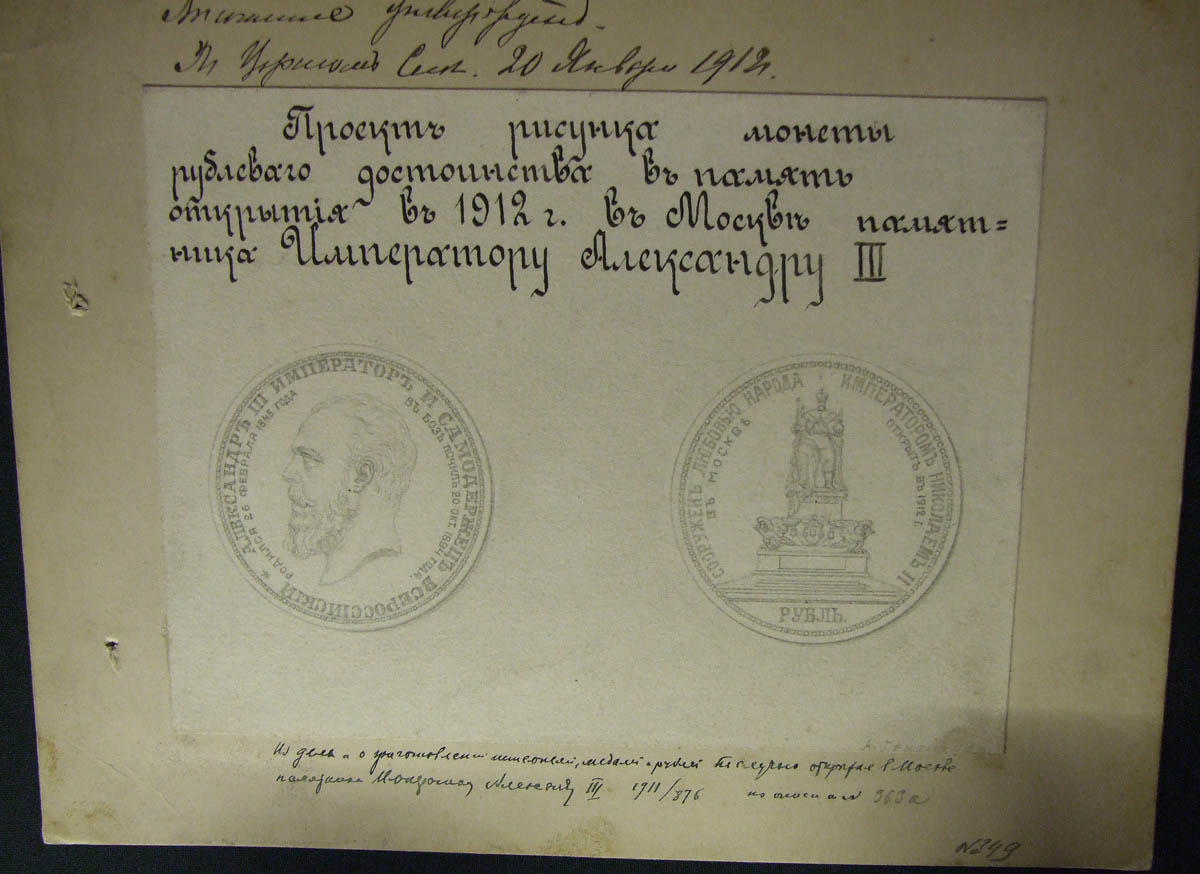 Высочайше утверждено.
Въ Царскомъ Селѣ. 20 Января 1912 г.
Проектъ рисунка монеты
рублеваго достоинства въ память
открытія въ 1912 г. въ Москвѣ памят=
ника Императору Александру III
* АЛЕКСАНДРЪ III ИМПЕРАТОРЪ И САМОДЕРЖЕЦЪ ВСЕРОССІЙСКІЙ
РОДИЛСЯ 26 ФЕВРАЛЯ 1845 ГОДА
ВЪ БОЗѢ ПОЧИЛЪ 20 ОКТ. 1894 ГОДА.
СООРУЖЕНЪ ЛЮБОВЬЮ НАРОДА
ИМПЕРАТОРОМЪ НИКОЛАЕМЪ II
ВЪ МОСКВѢ
ОТКРЫТЪ ВЪ 1912 Г.
РУБЛЬ.
Из дела о изготовлении медали рублей по случаю открытия в Москве
памятника III 1911/876 по описи № 363а
№349